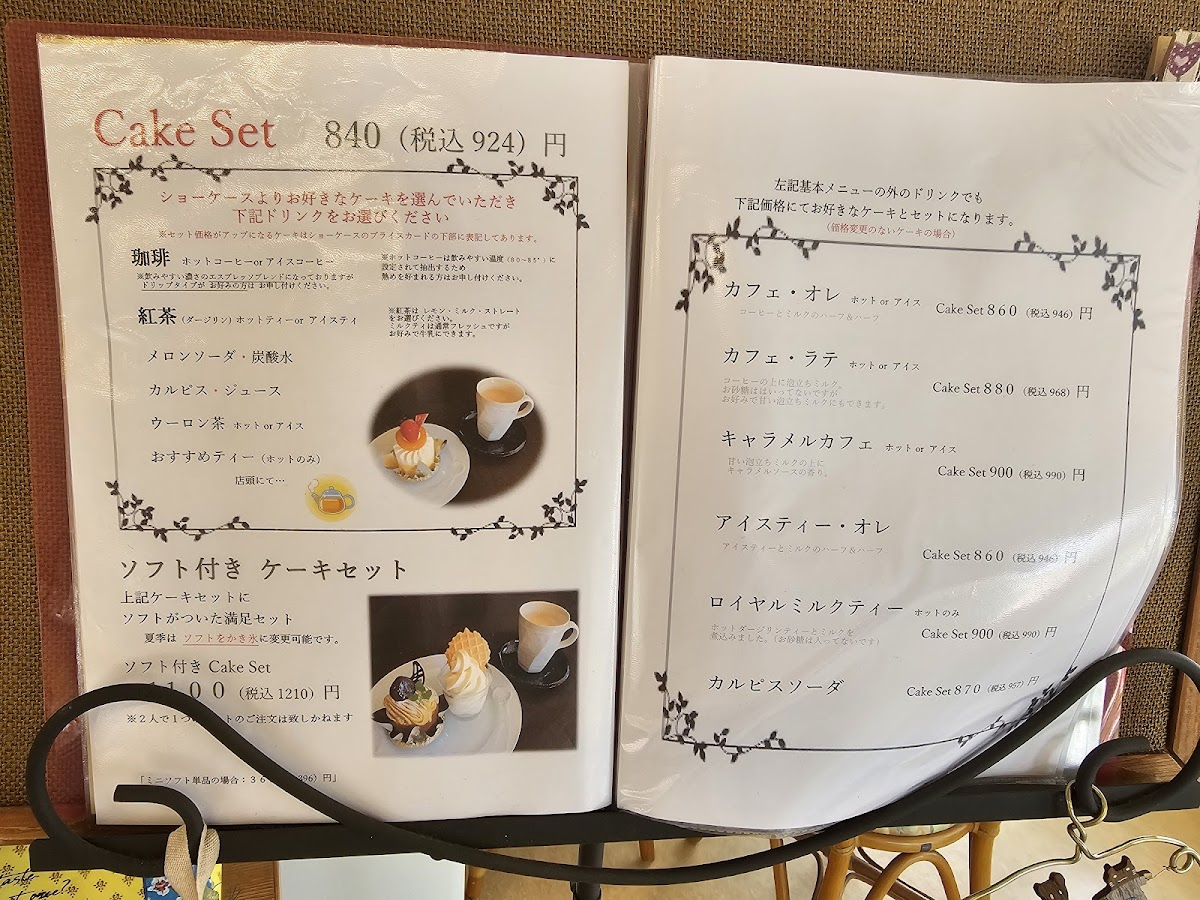 Cake Set 840（税込 924）円
ショーケースよりお好きなケーキを選んでいただき
下記ドリンクをお選びください
※セット価格がアップになるケーキはショーケースのプライスカードの下部に表記してあります。
珈琲 ホットコーヒーor アイスコーヒー
※飲みやすい濃さのエスプレッソブレンドになっておりますが
ドリップタイプが お好みの方は お申し付けください。
※ホットコーヒーは飲みやすい温度（80～85°）に
設定されて抽出するため
熱めを好まれる方はお申し付けください。
紅茶（ダージリン）ホットティーor アイスティ
※紅茶は レモン・ミルク・ストレート
をお選びください。
ミルクティは通常フレッシュですが
お好みで牛乳にできます。
メロンソーダ・炭酸水
カルピス・ジュース
ウーロン茶 ホット or アイス
おすすめティー（ホットのみ）
店頭にて…
ソフト付き ケーキセット
上記ケーキセットに
ソフトがついた満足セット
夏季は ソフトをかき氷に変更可能です。
ソフト付き Cake Set
100（税込 1210）円
※２人で１つ トのご注文は致しかねます
「ミニソフト単品の場合：３６ 396）円」
左記基本メニューの外のドリンクでも
下記価格にてお好きなケーキとセットになります。
（価格変更のないケーキの場合）
カフェ・オレ ホット or アイス Cake Set 860（税込 946）円
コーヒーとミルクのハーフ＆ハーフ
カフェ・ラテ ホット or アイス
コーヒーの上に泡立ちミルク。
お砂糖ははいってないですが
お好みで甘い泡立ちミルクにもできます。
Cake Set 880（税込 968）円
キャラメルカフェ ホット or アイス
甘い泡立ちミルクの上に
キャラメルソースの香り。
Cake Set 900（税込 990）円
アイスティー・オレ
アイスティーとミルクのハーフ＆ハーフ
Cake Set 860（税込 946）円
ロイヤルミルクティー ホットのみ
ホットダージリンティーとミルクを
煮込みました。（お砂糖は入ってないです）
Cake Set 900（税込 990）円
カルピスソーダ Cake Set 870（税込 957）円